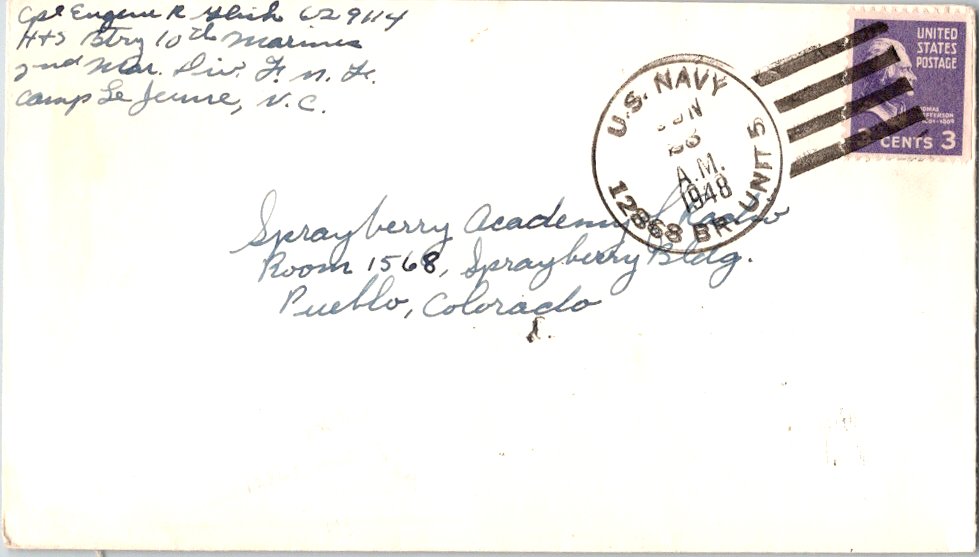 Cpl Eugene R 629114
H+S Btry 10th Marines
2nd Mar. Div. F. M. F.
Camp Le Jeune, N. C.
U.S. NAVY
JUN
A.M.
1948
12868 BR. UNIT 5
UNITED
STATES
POSTAGE
THOMAS
JEFFERSON
3 CENTS 3
Sprayberry Academy Radio
Room 1568, Sprayberry Bldg.
Pueblo, Colorado